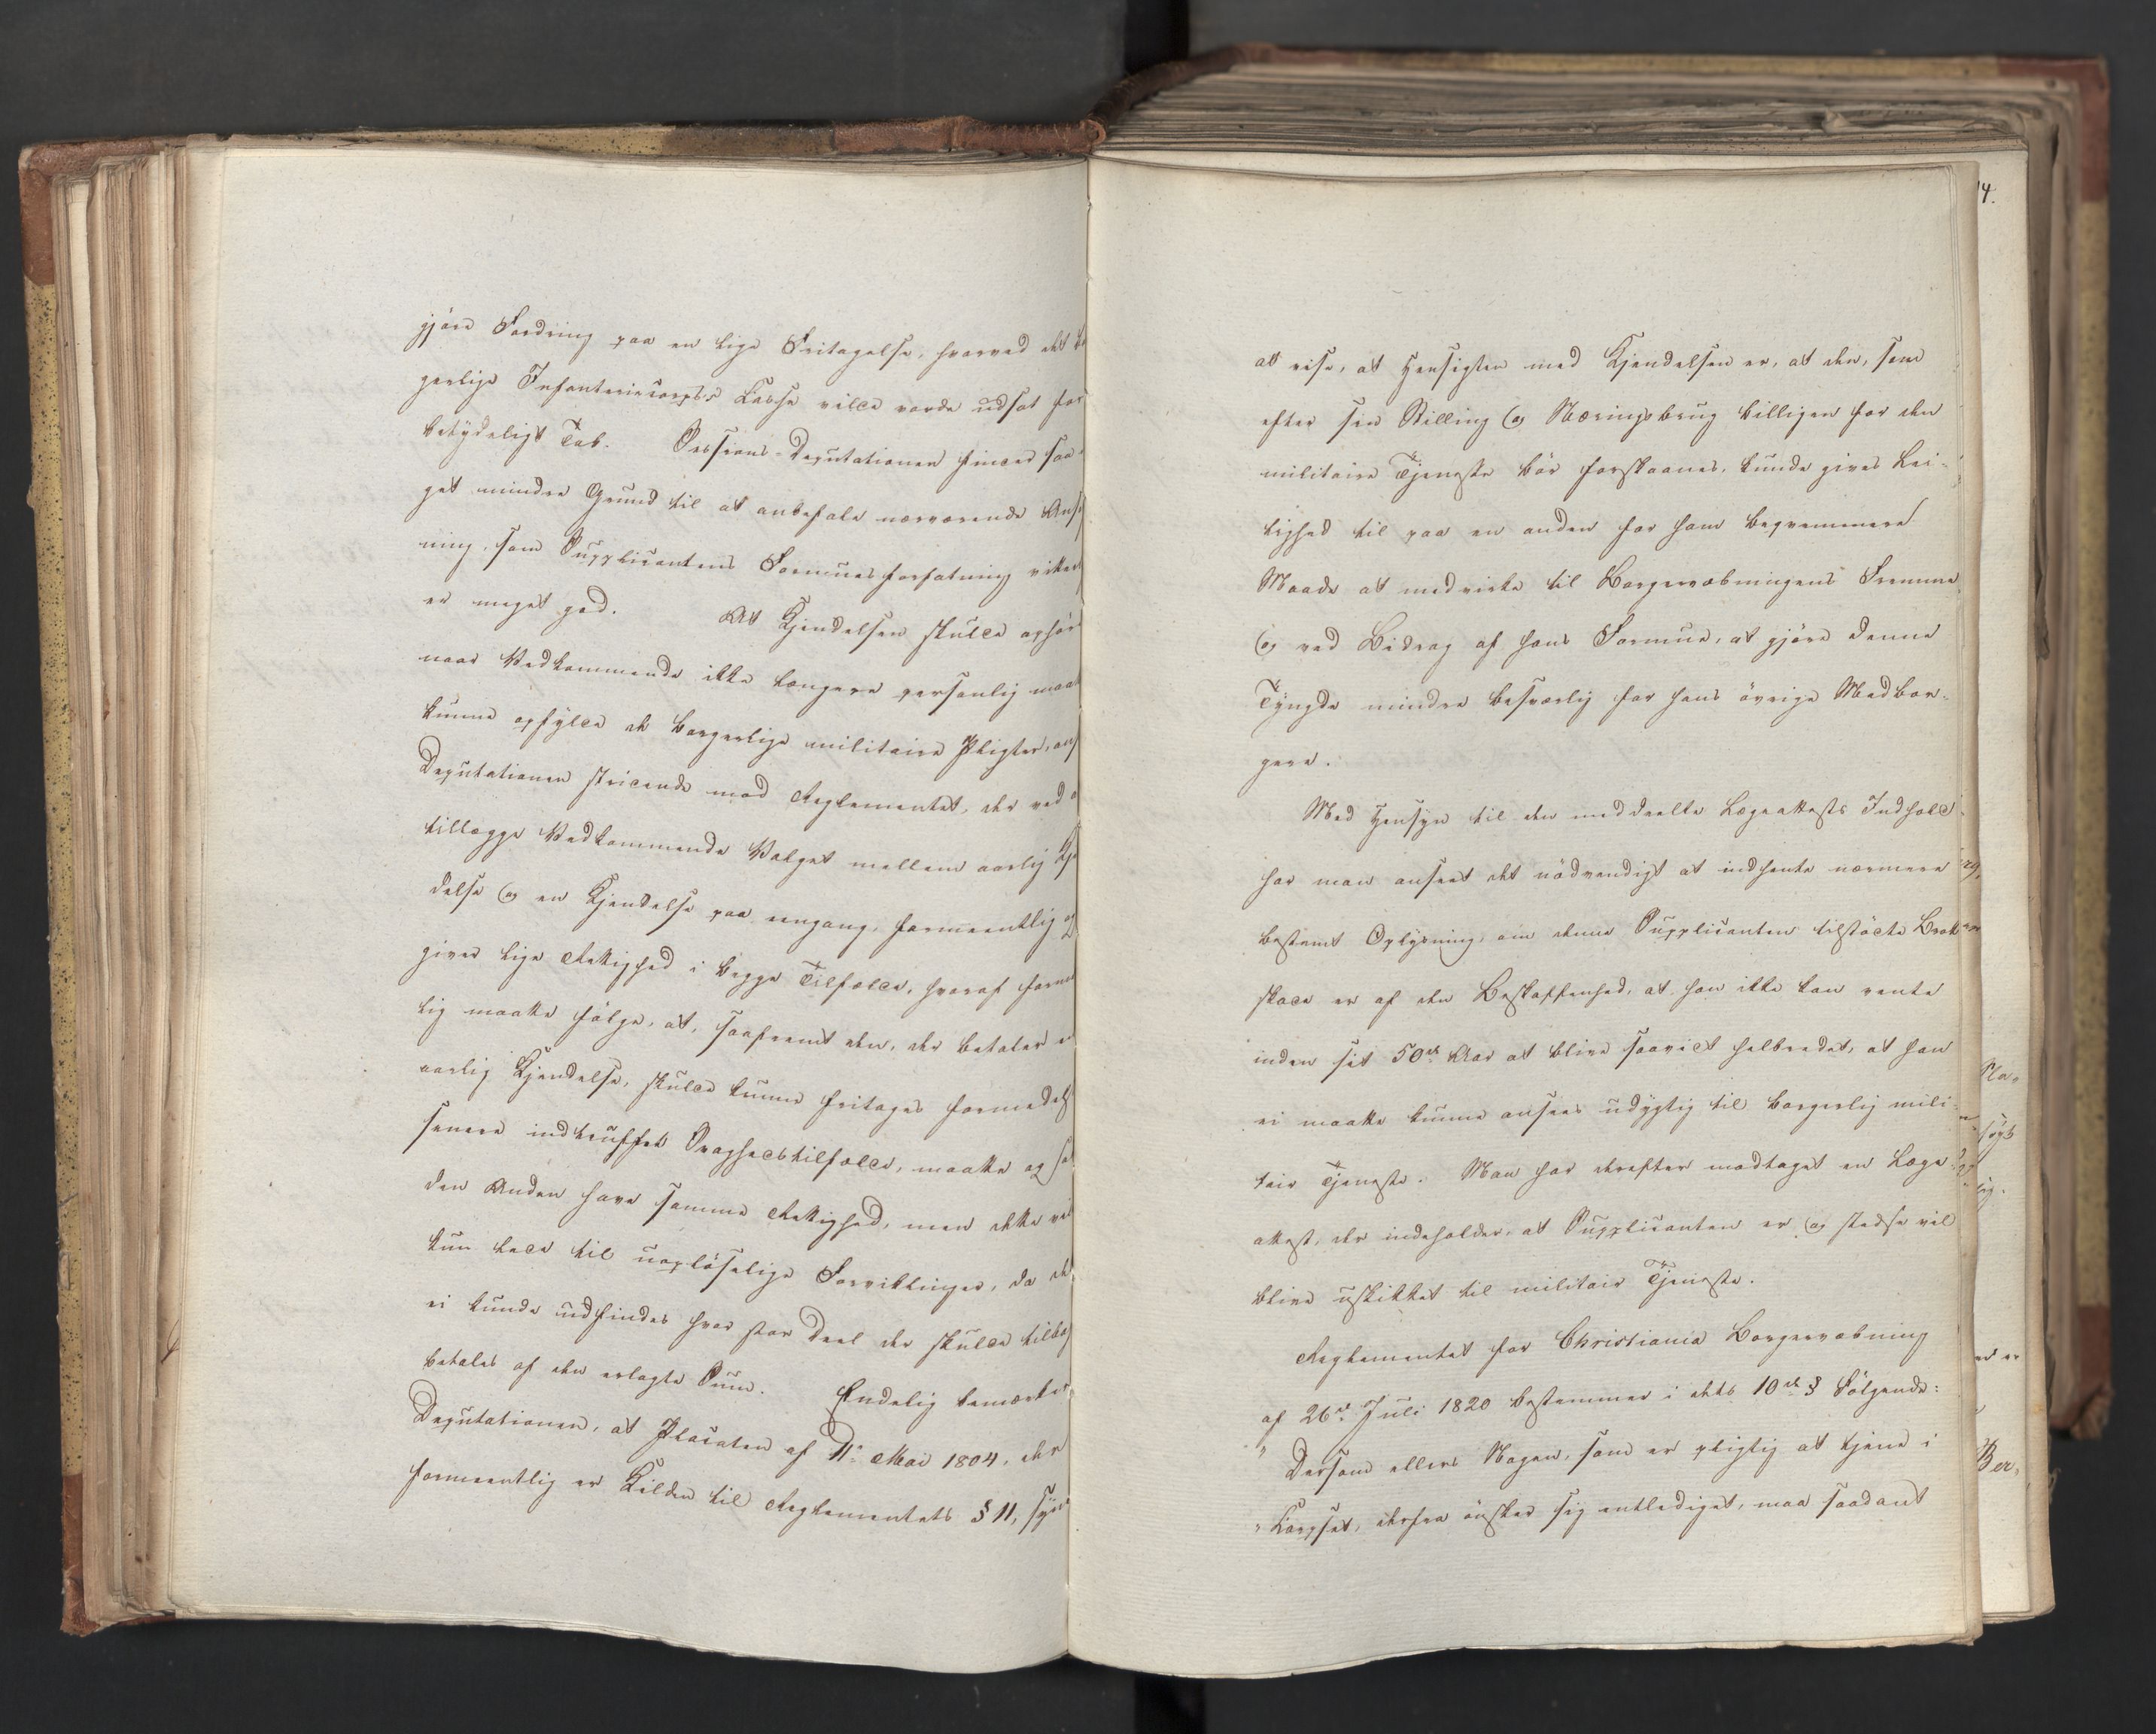 gjøre Fordring paa en lige Fritagelse, hvorved det
gerlige Infanteriecorps's Casse vilde vorde udsat for
betydeligt Tab. Sessions-Deputationen finder saa
get mindre Grund til at anbefale nærværende Ans
ning, som Supplicantens Formuesforfatning virkel
er meget god. At Kjendelsen skulde ophør
naar Vedkommende ikke længere personlig maat
kunne opfylde de borgerlige militaire Pligter, ans
Deputationen stridende mod Reglementet, der ved
tillægge Vedkommende Valget mellem aarlig Kje
delse og en Kjendelse paa eengang, formeentlig og
giver lige Rettighed i begge Tilfælde, hvoraf forme
lig maatte følge, at, saafremt den, der betaler e
aarlig Kjendelse, skulde kunne fritages formedels
senere indtruffet Svaghedstilfælde, maatte og saa
den Anden have samme Rettighed, men dette vil
kun lede til uopløselige Forviklinger, da det
ei kunde udfindes hvor stor Deel der skulde tilbag
betales af den erlagte Sum. Endelig bemærker
Deputationen, at Placaten af 11te Mai 1804, der
formeentlig er Kilden til Reglementets § 11, syn
at vise, at Hensigten med Kjendelsen er, at den, som
efter sin Stilling og Næringsbrug billigen for den
militaire Tjeneste bör forskaanes, kunde gives Lei-
lighed til paa en anden for ham beqvemmere
Maade at medvirke til Borgervæbningens Fremme
og ved Bidrag af hans Formue, at gjöre denne
Tyngde mindre besværlig for hans övrige Medbor-
gere.
Med Hensyn til den meddeelte Lægeattests Indhold
har man anseet det nödvendigt at indhente nærmere
bestemt Oplysning, om denne Supplicanten tilstödte Brok
skade er af den Beskaffenhed, at han ikke kan vente
inden sit 50de Aar at blive saavidt helbredet, at han
ei maatte kunne ansees udygtig til borgerlig mili-
tair Tjeneste. Man har derefter modtaget en Læge-
attest, der indeholder, at Supplicanten er og stedse vil
blive uskikket til militair Tjeneste.
Reglementet for Christiania Borgervæbning
af 26de Juli 1820 bestemmer i dets 10de § Fölgende:
" Dersom ellers Nogen, som er pligtig at tjene i
" Corpset, derfra önsker sig entlediget, maa saadant
4.